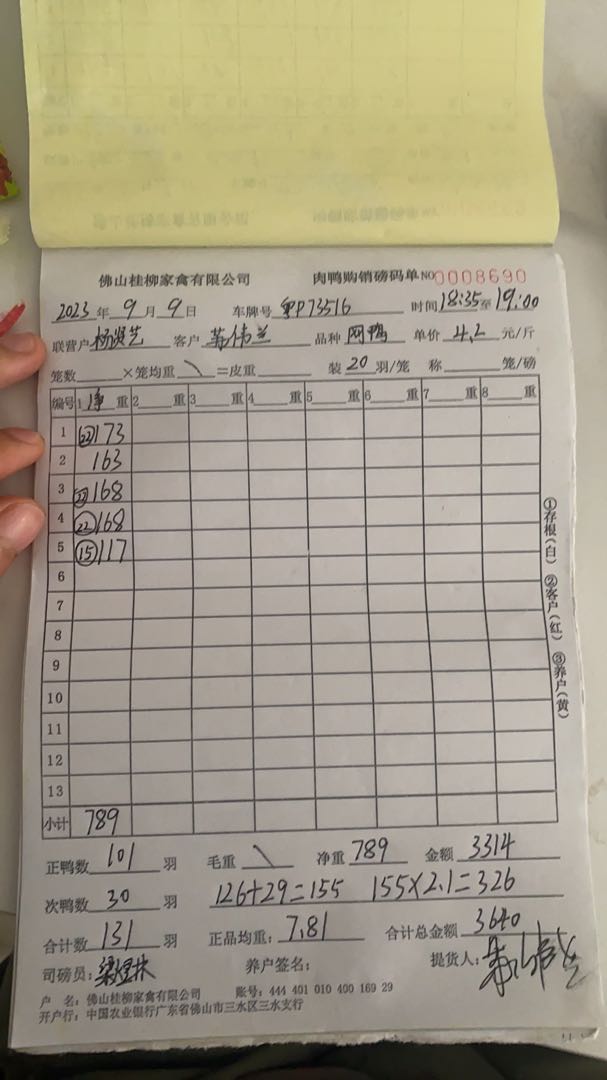 佛山桂柳家禽有限公司 肉鸭购销磅码单 NO 0008690
2023年 9月 9日 车牌号 粤P73516 时间18:35至19:00
联营户 杨贤艺 客户 伟兰 品种 网鸭 单价 4.2 元/斤
笼数 ×笼均重 \ =皮重 装 20 羽/笼 称 笼/磅
编号 1 净 重 2 重 3 重 4 重 5 重 6 重 7 重 8 重
1 173
2 163
3 168
4 ㉒ 168
5 ⑮ 117
6
7
8
9
10
11
12
13
小计 789
①存根(白) ②客户(红) ③养户(黄)
正鸭数 101 羽 毛重 \ 净重 789 金额 3314
次鸭数 30 羽 126+29=155 155×2.1=326
合计数 131 羽 正品均重: 7.81 合计总金额 3640
司磅员: 养户签名: 提货人:
户 名: 佛山桂柳家禽有限公司 账号: 444 401 010 400 169 29
开户行: 中国农业银行广东省佛山市三水区三水支行